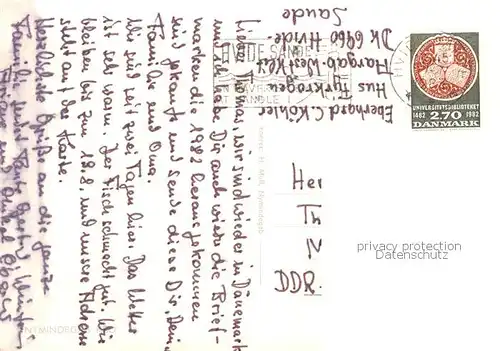 Lieber Thomas, wir sind wieder in Dänemark
und ich habe Dir auch wieder die Brief-
marken die 1982 herausgekommen
sind gekauft und sende diese Dir, Deiner
Familie und Oma.
Wir sind seit zwei Tagen hier. Das Wetter
ist sehr warm. Der Fisch schmeckt gut. Wir
bleiben bis zum 18.8. und unsere Adresse
steht auf der Karte.
Herzliche Grüße an die ganze
Familie
Eberhard C. Köhler
Hus Fyrkrogen
Aargab Westkl
DK 6960 Hvide
Sande
HVIDE SANDE
UNIVERSITETSBIBLIOTEKET
1482 2.70 1982
DANMARK
Her
Th
DDR.
privacy protection
Datenschutz